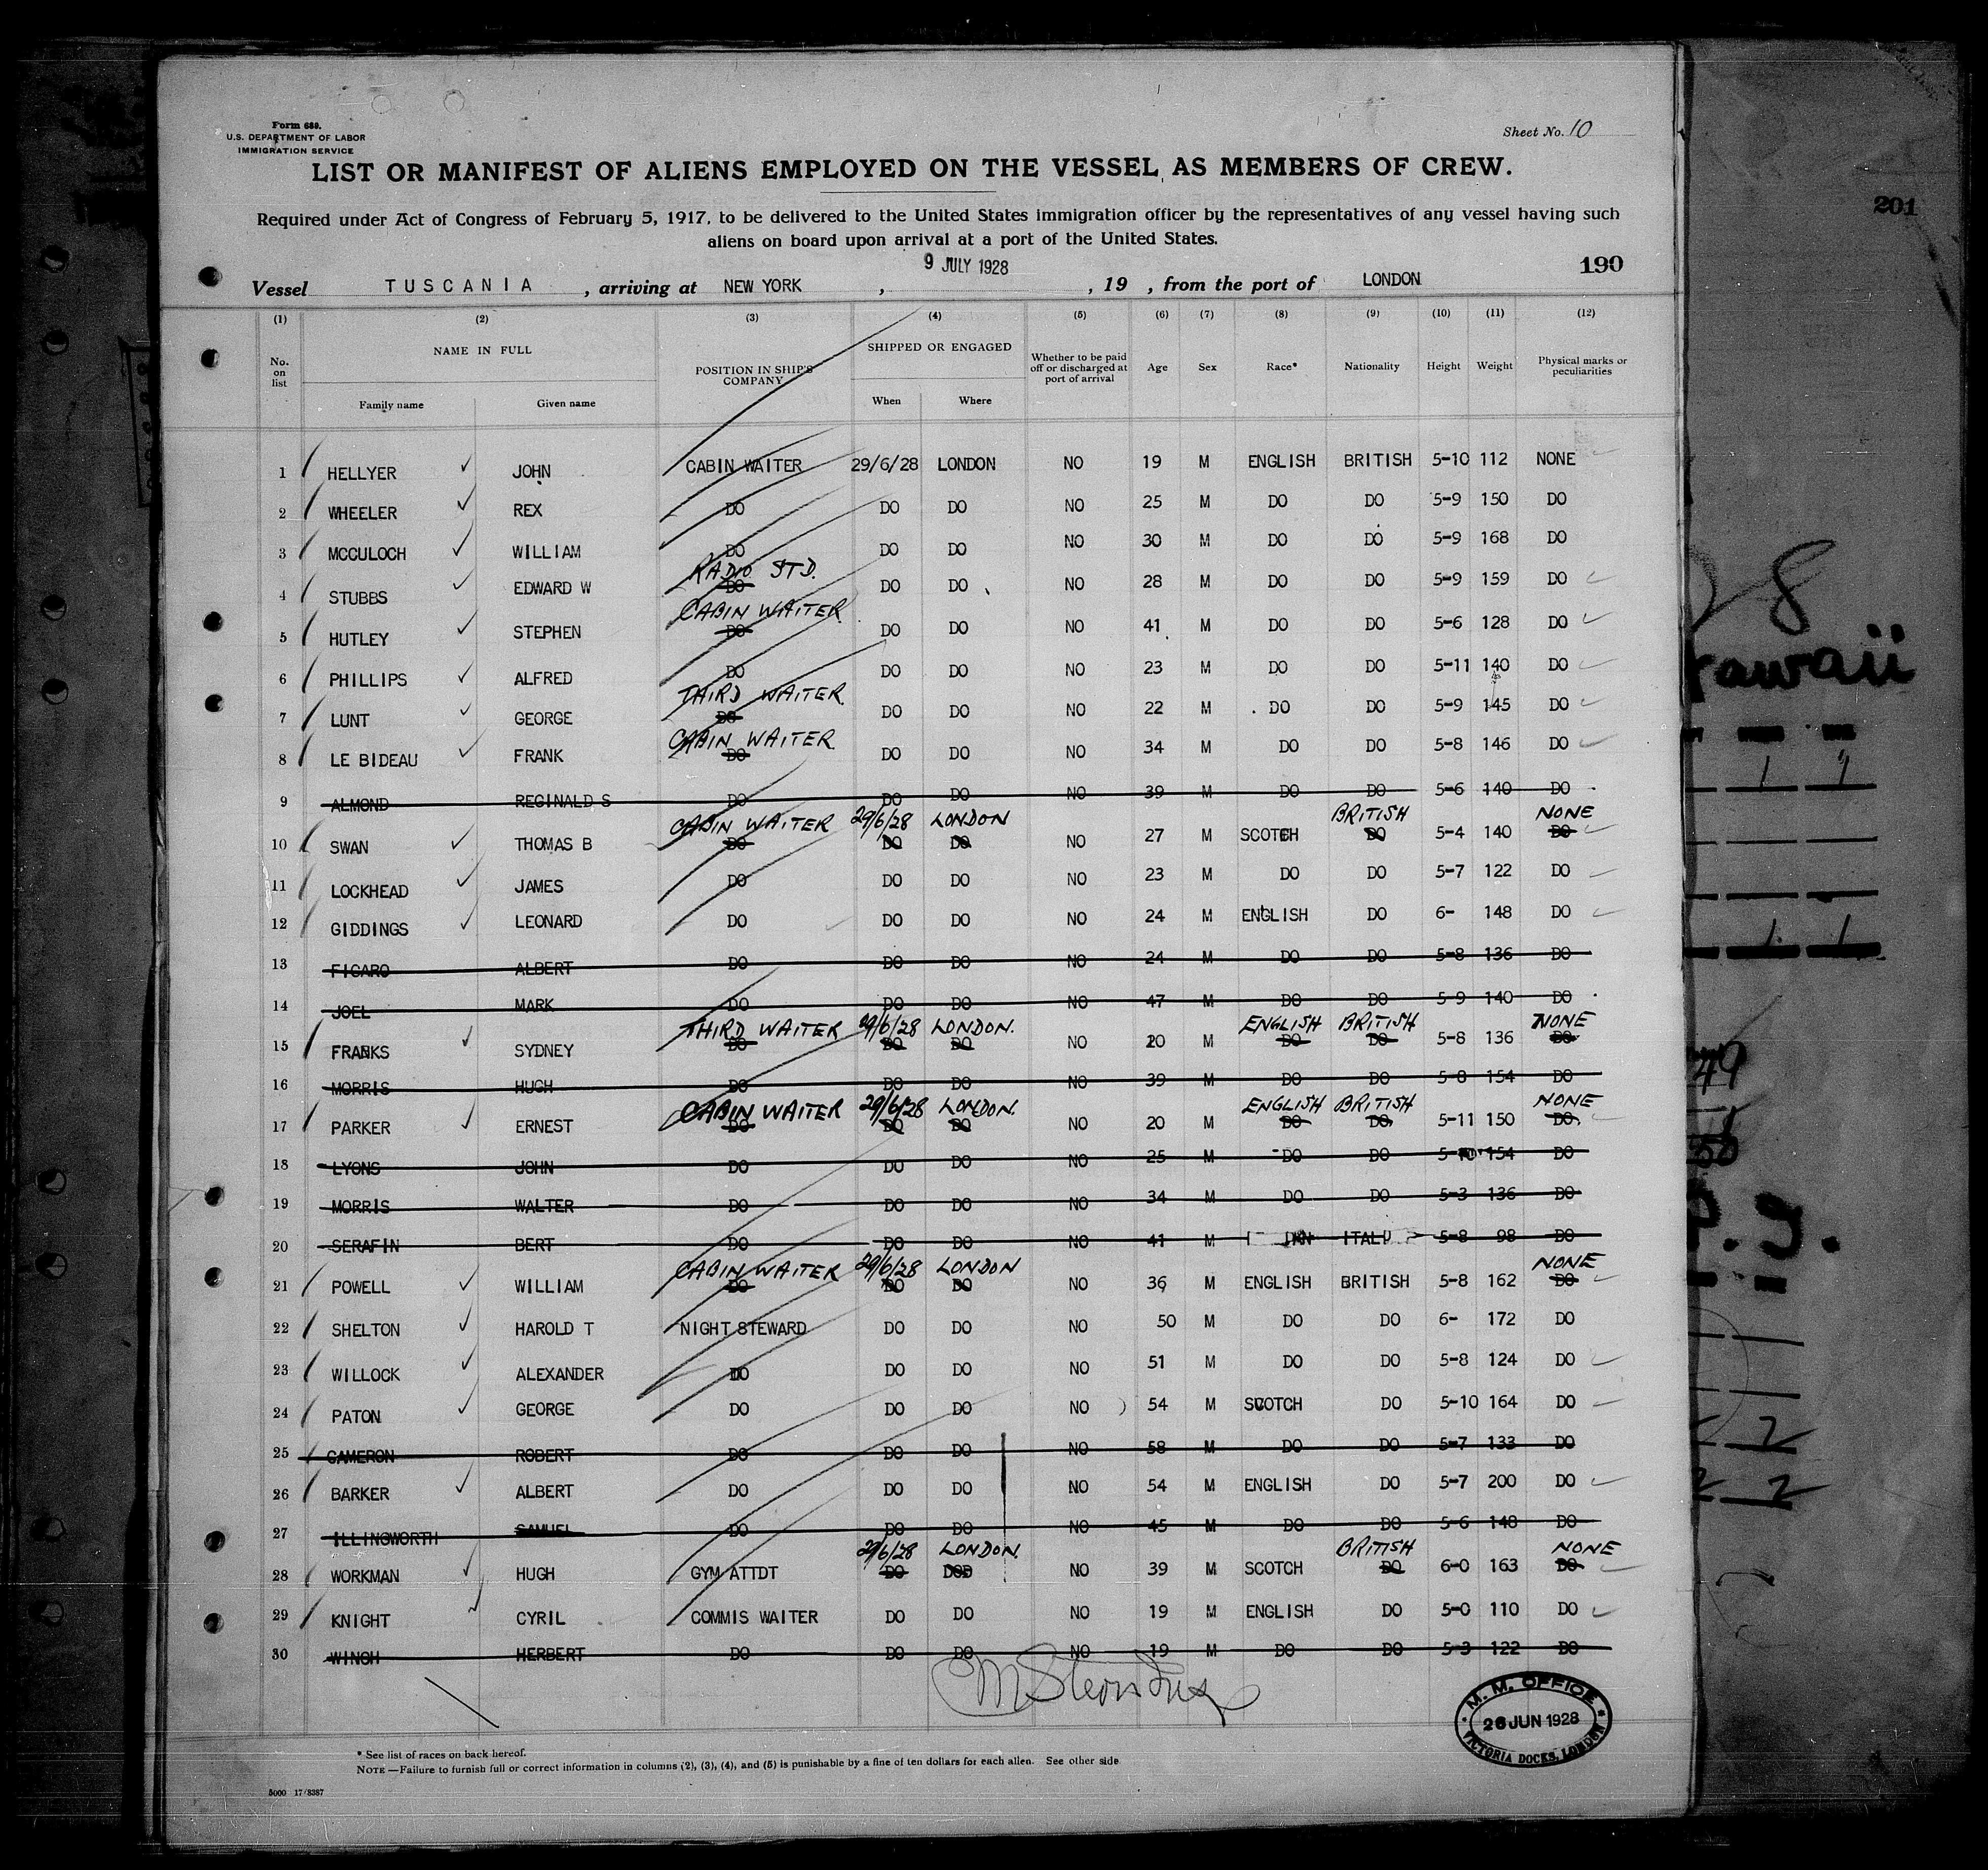 Form 689.
U.S. DEPARTMENT OF LABOR
IMMIGRATION SERVICE
Sheet No. 10
LIST OR MANIFEST OF ALIENS EMPLOYED ON THE VESSEL AS MEMBERS OF CREW.
201
Required under Act of Congress of February 5, 1917, to be delivered to the United States immigration officer by the representatives of any vessel having such
aliens on board upon arrival at a port of the United States.
9 JULY 1928
190
Vessel TUSCANIA , arriving at NEW YORK , , 19 , from the port of LONDON
(1) (2) (3) (4) (5) (6) (7) (8) (9) (10) (11) (12)
No. on list NAME IN FULL Family name Given name POSITION IN SHIP'S COMPANY SHIPPED OR ENGAGED When Where Whether to be paid off or discharged at port of arrival Age Sex Race* Nationality Height Weight Physical marks or peculiarities
1 HELLYER JOHN CABIN WAITER 29/6/28 LONDON NO 19 M ENGLISH BRITISH 5-10 112 NONE
2 WHEELER REX DO DO DO NO 25 M DO DO 5-9 150 DO
3 MCCULOCH WILLIAM DO DO DO NO 30 M DO DO 5-9 168 DO
RADIO STD.
4 STUBBS EDWARD W DO DO DO NO 28 M DO DO 5-9 159 DO
CABIN WAITER
5 HUTLEY STEPHEN DO DO DO NO 41 M DO DO 5-6 128 DO
6 PHILLIPS ALFRED DO DO DO NO 23 M DO DO 5-11 140 DO
THIRD WAITER
7 LUNT GEORGE DO DO DO NO 22 M DO DO 5-9 145 DO
CABIN WAITER
8 LE BIDEAU FRANK DO DO DO NO 34 M DO DO 5-8 146 DO
9 ALMOND REGINALD S DO DO DO NO 39 M DO DO 5-6 140 DO
CABIN WAITER 29/6/28 LONDON BRITISH NONE
10 SWAN THOMAS B DO DO DO NO 27 M SCOTCH DO 5-4 140 DO
11 LOCKHEAD JAMES DO DO DO NO 23 M DO DO 5-7 122 DO
12 GIDDINGS LEONARD DO DO DO NO 24 M ENGLISH DO 6- 148 DO
13 FICARO ALBERT DO DO DO NO 24 M DO DO 5-8 136 DO
14 JOEL MARK DO DO DO NO 47 M DO DO 5-9 140 DO
THIRD WAITER 29/6/28 LONDON. ENGLISH BRITISH NONE
15 FRANKS SYDNEY DO DO DO NO 20 M DO DO 5-8 136 DO
16 MORRIS HUGH DO DO DO NO 39 M DO DO 5-8 154 DO
CABIN WAITER 29/6/28 LONDON. ENGLISH BRITISH NONE
17 PARKER ERNEST DO DO DO NO 20 M DO DO 5-11 150 DO
18 LYONS JOHN DO DO DO NO 25 M DO DO 154 DO
19 MORRIS WALTER DO DO DO NO 34 M DO DO 5-3 136 DO
20 SERAFIN BERT DO DO DO NO 41 M 5-8 98 DO
CABIN WAITER 29/6/28 LONDON NONE
21 POWELL WILLIAM DO DO DO NO 36 M ENGLISH BRITISH 5-8 162 DO
22 SHELTON HAROLD T NIGHT STEWARD DO DO NO 50 M DO DO 6- 172 DO
23 WILLOCK ALEXANDER DO DO DO NO 51 M DO DO 5-8 124 DO
24 PATON GEORGE DO DO DO NO 54 M SCOTCH DO 5-10 164 DO
25 CAMERON ROBERT DO DO DO NO 58 M DO DO 5-7 133 DO
26 BARKER ALBERT DO DO DO NO 54 M ENGLISH DO 5-7 200 DO
27 ILLINGWORTH SAMUEL DO DO DO NO 45 M DO DO 5-6 148 DO
29/6/28 LONDON. BRITISH NONE
28 WORKMAN HUGH GYM ATTDT DO DO NO 39 M SCOTCH DO 6-0 163 DO
29 KNIGHT CYRIL COMMIS WAITER DO DO NO 19 M ENGLISH DO 5-0 110 DO
30 WINCH HERBERT DO DO DO NO 19 M DO DO 5-3 122 DO
M. M. OFFICE
26 JUN 1928
VICTORIA DOCKS, LONDON
* See list of races on back hereof.
NOTE—Failure to furnish full or correct information in columns (2), (3), (4), and (5) is punishable by a fine of ten dollars for each alien. See other side
5000 17/8387